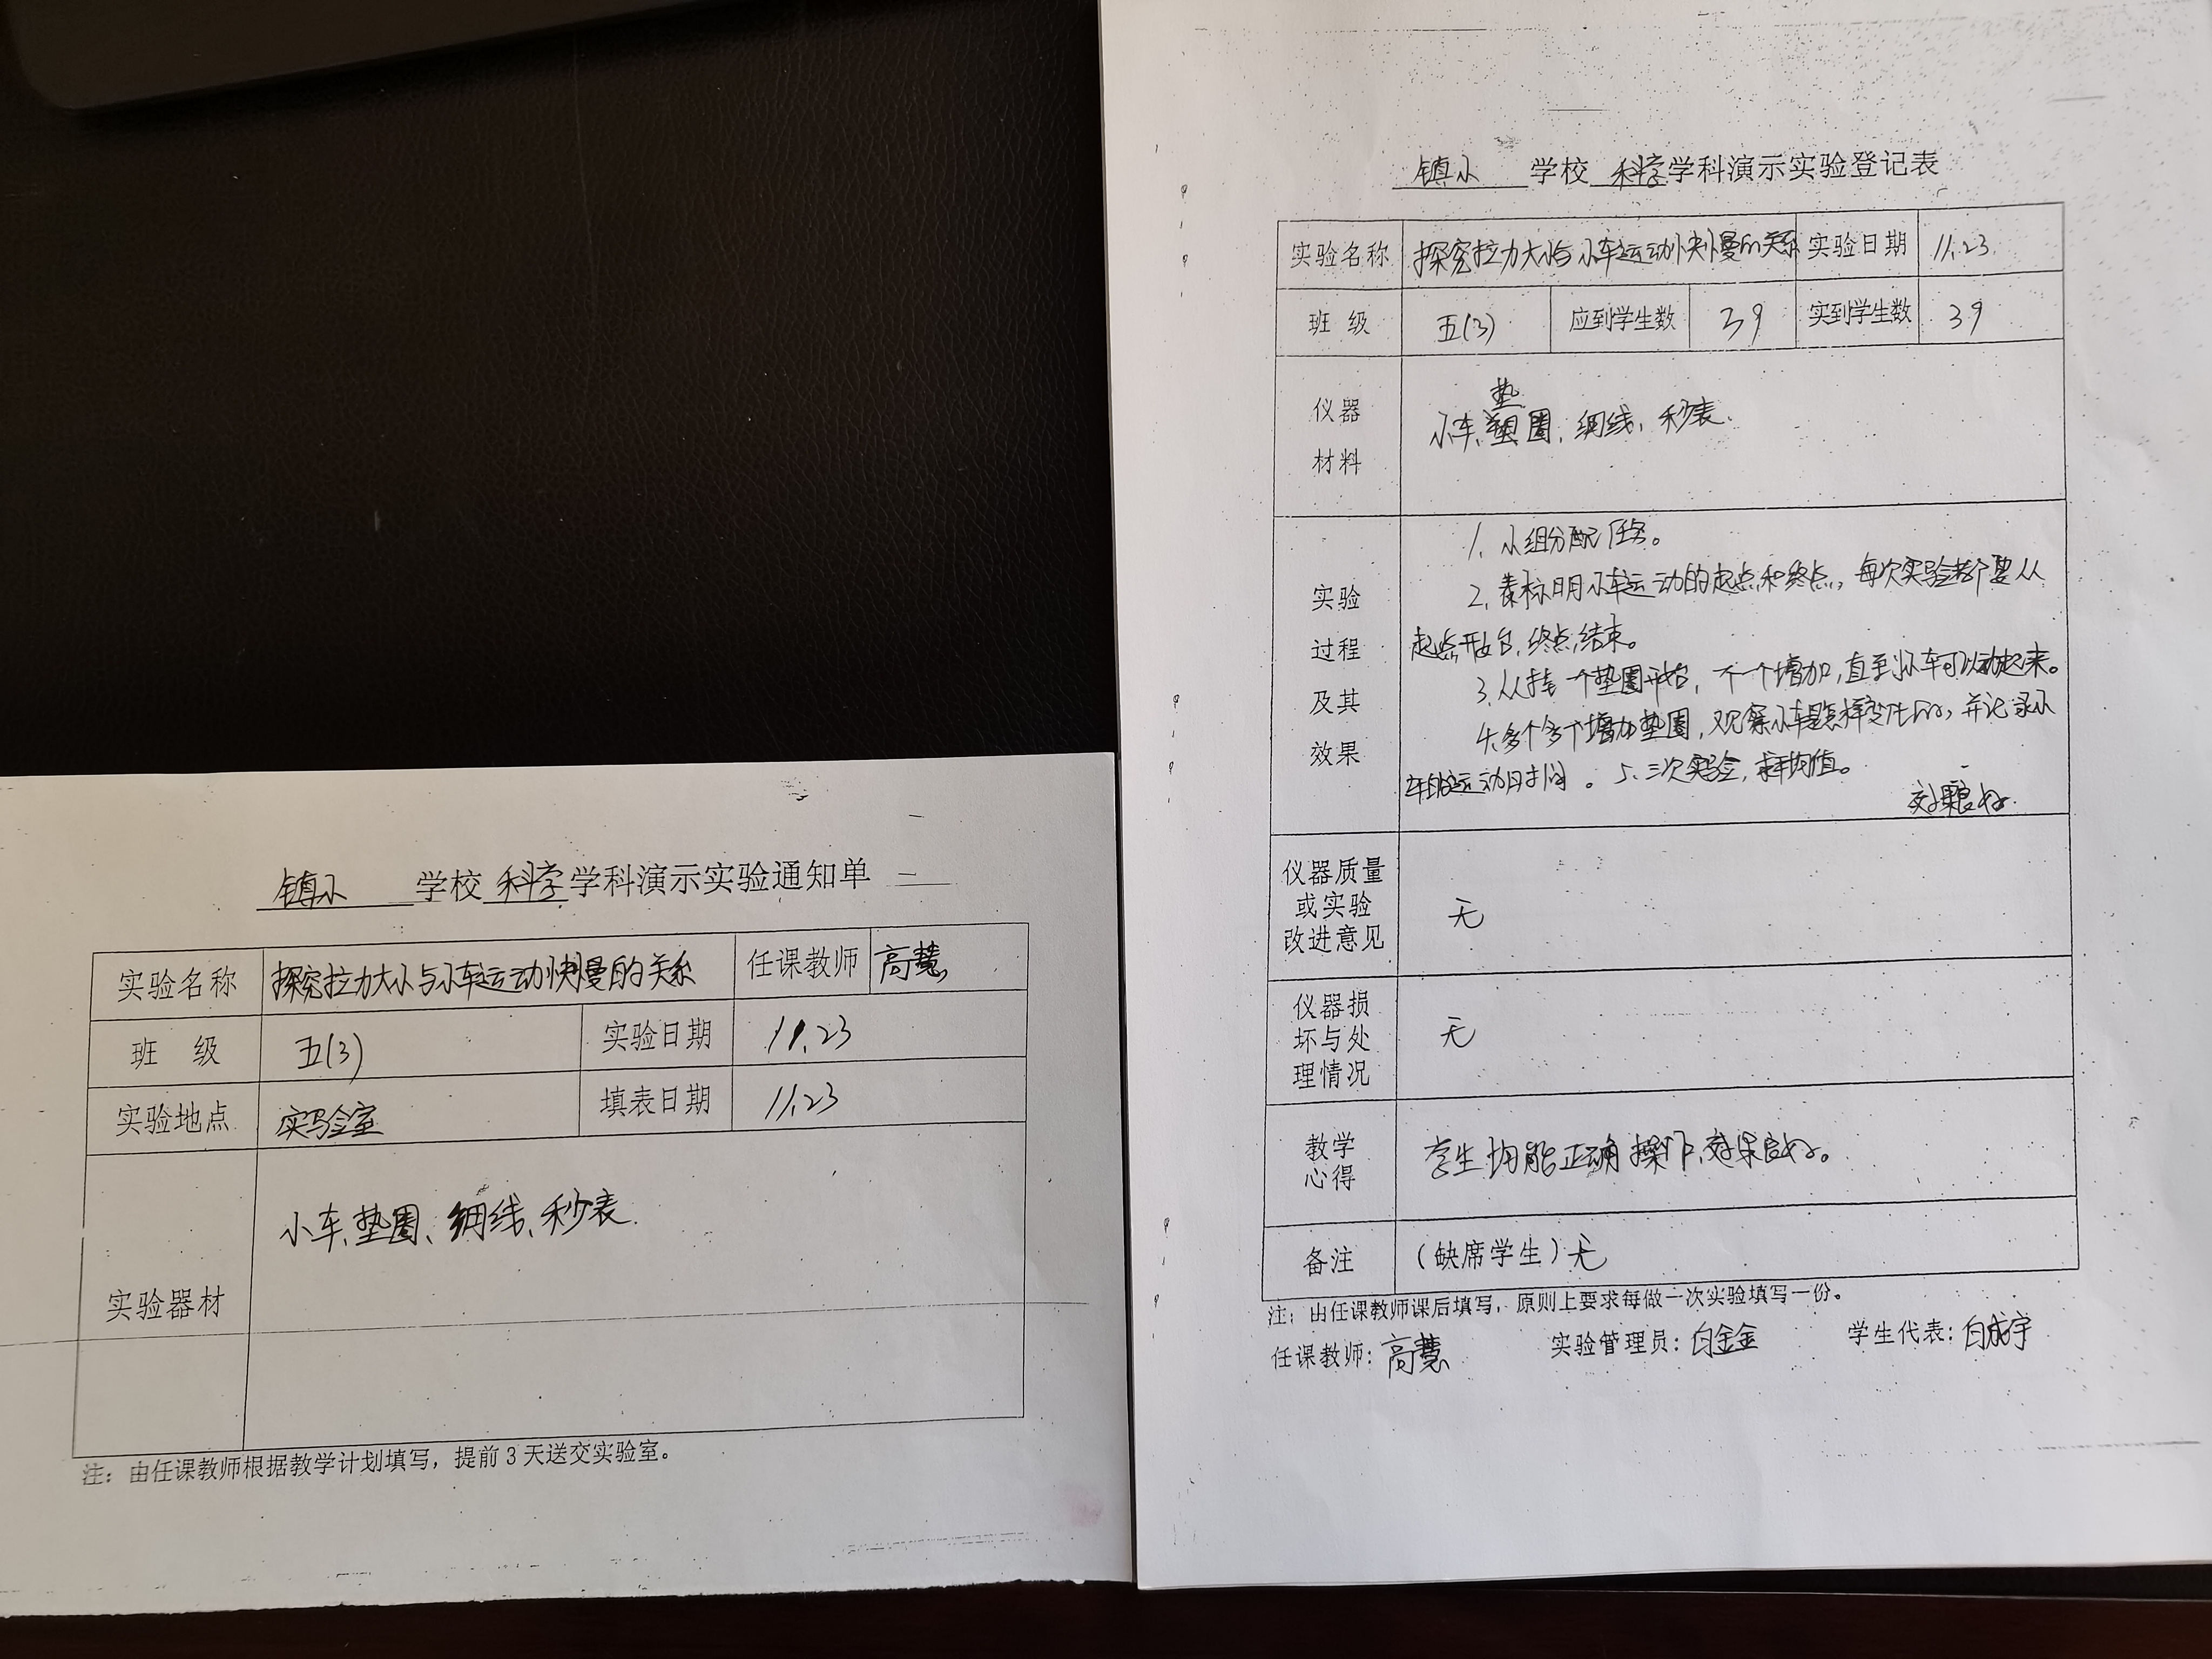 镇小 学校 科学 学科演示实验通知单
实验名称 探究拉力大小与小车运动快慢的关系 任课教师 高慧
班 级 五(3) 实验日期 11.23
实验地点 实验室 填表日期 11.23
实验器材 小车、垫圈、细线、秒表.
注：由任课教师根据教学计划填写，提前3天送交实验室。
镇小 学校 科学 学科演示实验登记表
实验名称 探究拉力大小与小车运动快慢的关系 实验日期 11.23
班 级 五(3) 应到学生数 39 实到学生数 39
垫
仪器 小车、圈、细线、秒表.
材料
1. 小组分配任务。
2. 标明小车运动的起点和终点，每次实验都要从
起点开始，终点结束。
3. 从挂一个垫圈开始，一个个增加，直至小车可以动起来。
4. 多个多个增加垫圈，观察小车是怎样变化的，并记录小
车运动时间。 5. 三次实验，求平均值。
效果良好.
实验
过程
及其
效果
仪器质量
或实验
改进意见
无
仪器损
坏与处
理情况
无
教学
心得
学生均能正确操作，效果良好。
备注 （缺席学生）无
注：由任课教师课后填写，原则上要求每做一次实验填写一份。
任课教师：高慧 实验管理员：白金金 学生代表：白成宇